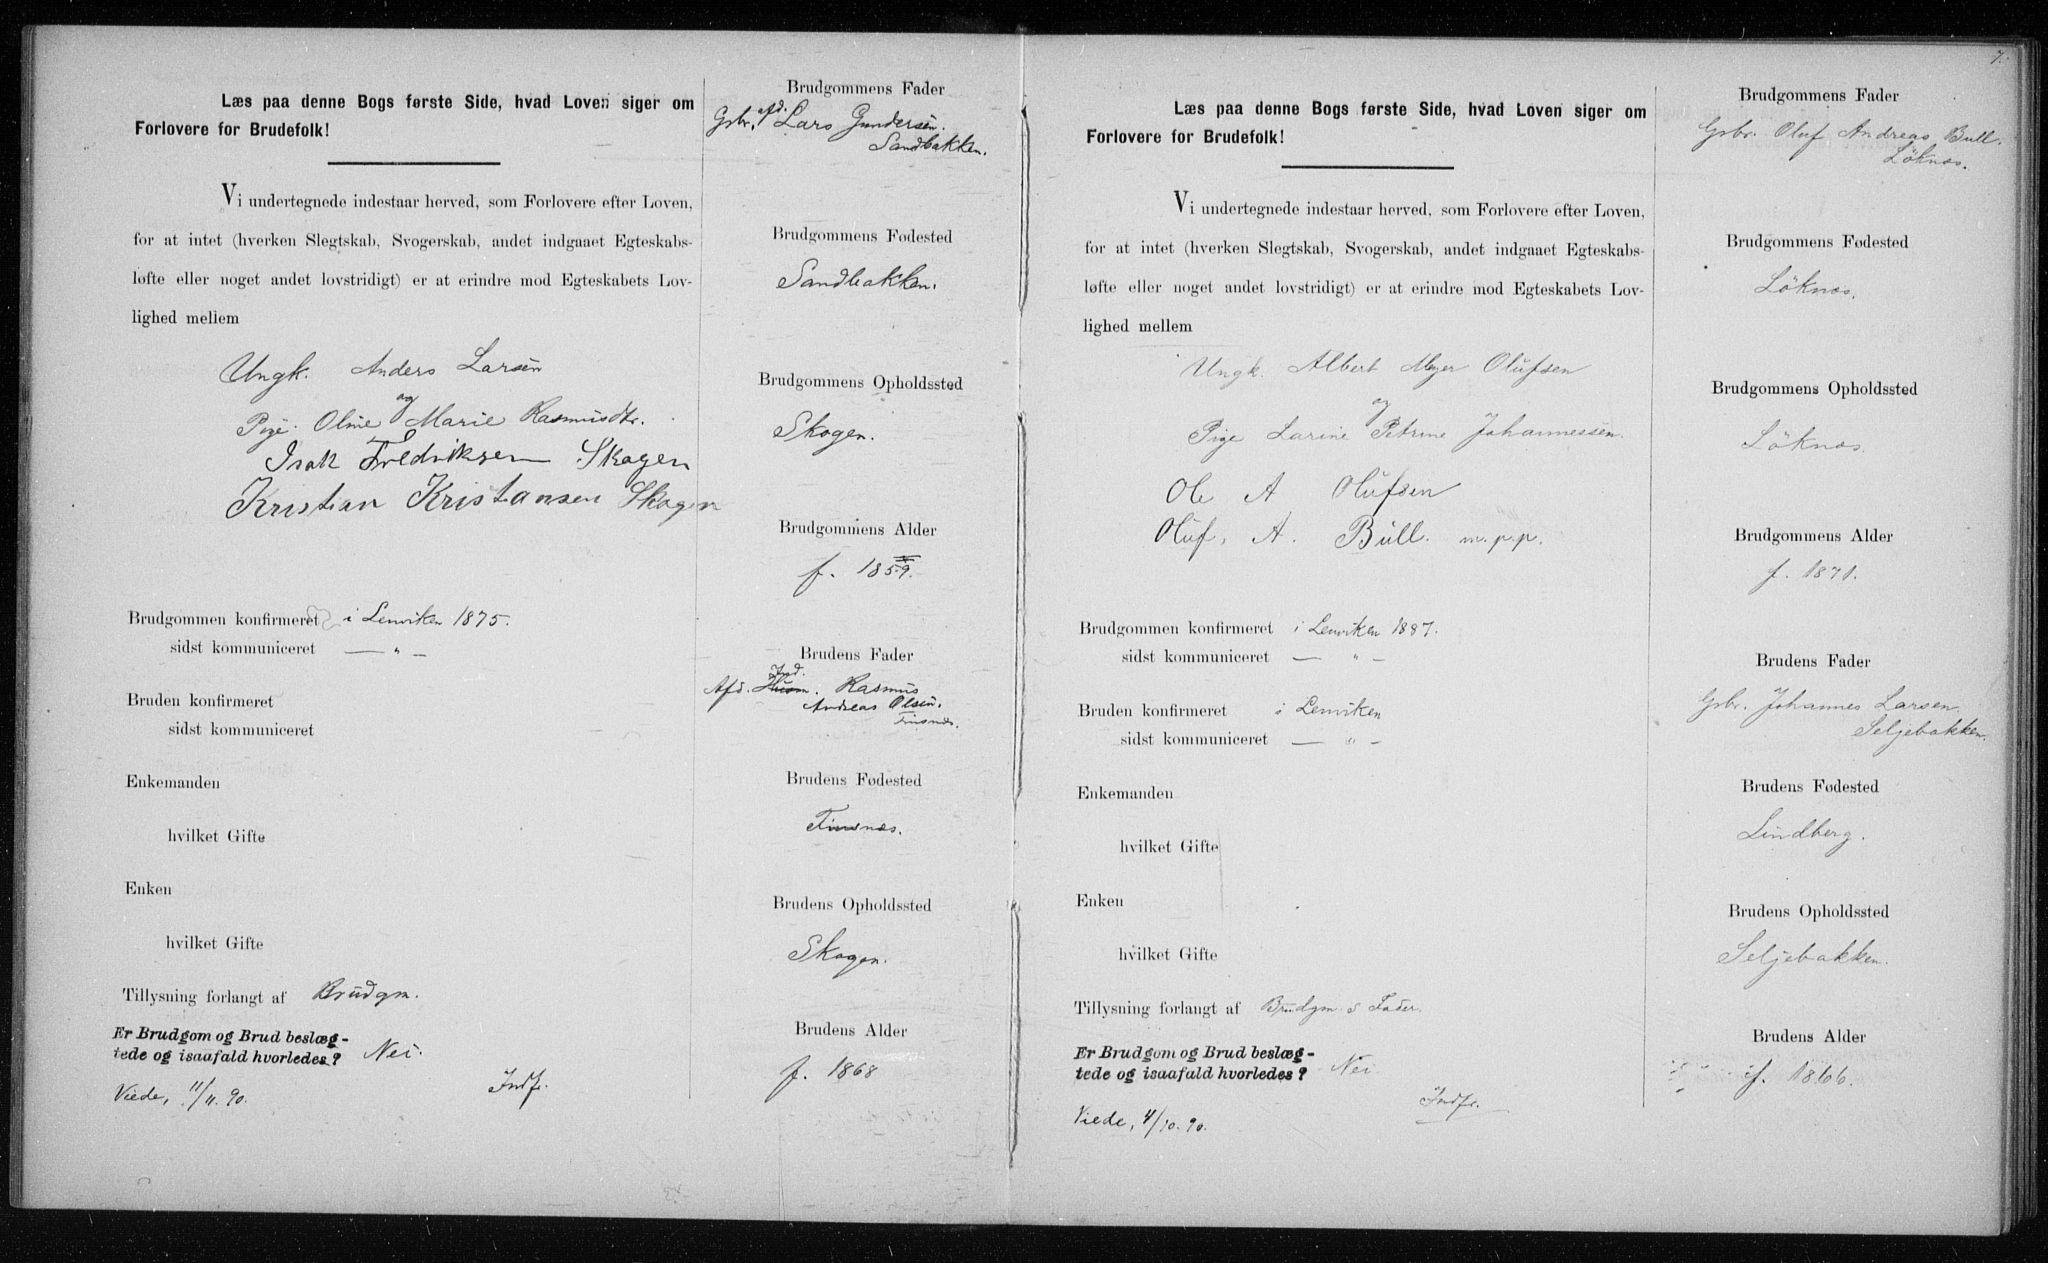 Læs paa denne Bogs første Side, hvad Loven siger om
Forlovere for Brudefolk!
Vi undertegnede indestaar herved, som Forlovere efter Loven,
for at intet (hverken Slegtskab, Svogerskab, andet indgaaet Egteskabs-
løfte eller noget andet lovstridigt) er at erindre mod Egteskabets Lov-
lighed mellem
Ungk. Anders Larsen
og
Pige Oline Marie Rasmusdtr.
Isak Fredriksen Skogen
Kristian Kristansen Skogen
Brudgommen konfirmeret i Lenviken 1875.
sidst kommuniceret — " —
Bruden konfirmeret
sidst kommuniceret
Enkemanden
hvilket Gifte
Enken
hvilket Gifte
Tillysning forlangt af Brudgm.
Er Brudgom og Brud beslæg-
tede og isaafald hvorledes? Nei.
Viede, 11/11. 90. Indf.
Brudgommens Fader
Gbr. afd. Lars Gundersen.
Sandbakken.
Brudgommens Fødested
Sandbakken.
Brudgommens Opholdssted
Skogen.
Brudgommens Alder
f. 1859.
Brudens Fader
Ind.
Afd. Husm. Rasmus
Andreas Olsen,
Finsnæs.
Brudens Fødested
Finsnæs.
Brudens Opholdssted
Skogen.
Brudens Alder
f. 1868
7.
Læs paa denne Bogs første Side, hvad Loven siger om
Forlovere for Brudefolk!
Vi undertegnede indestaar herved, som Forlovere efter Loven,
for at intet (hverken Slegtskab, Svogerskab, andet indgaaet Egteskabs-
løfte eller noget andet lovstridigt) er at erindre mod Egteskabets Lov-
lighed mellem
Ungk. Albert Meyer Olufsen
og
Pige Larine Petrine Johannessen.
Ole A Olufsen
Oluf. A. Bull. m.p.p.
Brudgommen konfirmeret i Lenviken 1887.
sidst kommuniceret — " —
Bruden konfirmeret i Lenviken
sidst kommuniceret — " —
Enkemanden
hvilket Gifte
Enken
hvilket Gifte
Tillysning forlangt af Brudgm.s Fader.
Er Brudgom og Brud beslæg-
tede og isaafald hvorledes? Nei
Viede, 4/10. 90. Indf.
Brudgommens Fader
Gbr. Oluf Andreas Bull.
Löknæs.
Brudgommens Fødested
Löknæs.
Brudgommens Opholdssted
Löknæs.
Brudgommens Alder
f. 1871.
Brudens Fader
Gbr. Johannes Larsen.
Seljebakken.
Brudens Fødested
Lindberg.
Brudens Opholdssted
Seljebakken.
Brudens Alder
f. 1866.